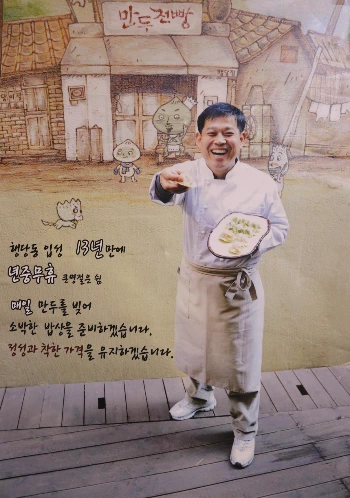 만두전빵
행당동 입성 13년만에
년중무휴 큰명절은 쉼
매일 만두를 빚어
소박한 밥상을 준비하겠습니다.
정성과 착한 가격을 유지하겠습니다.